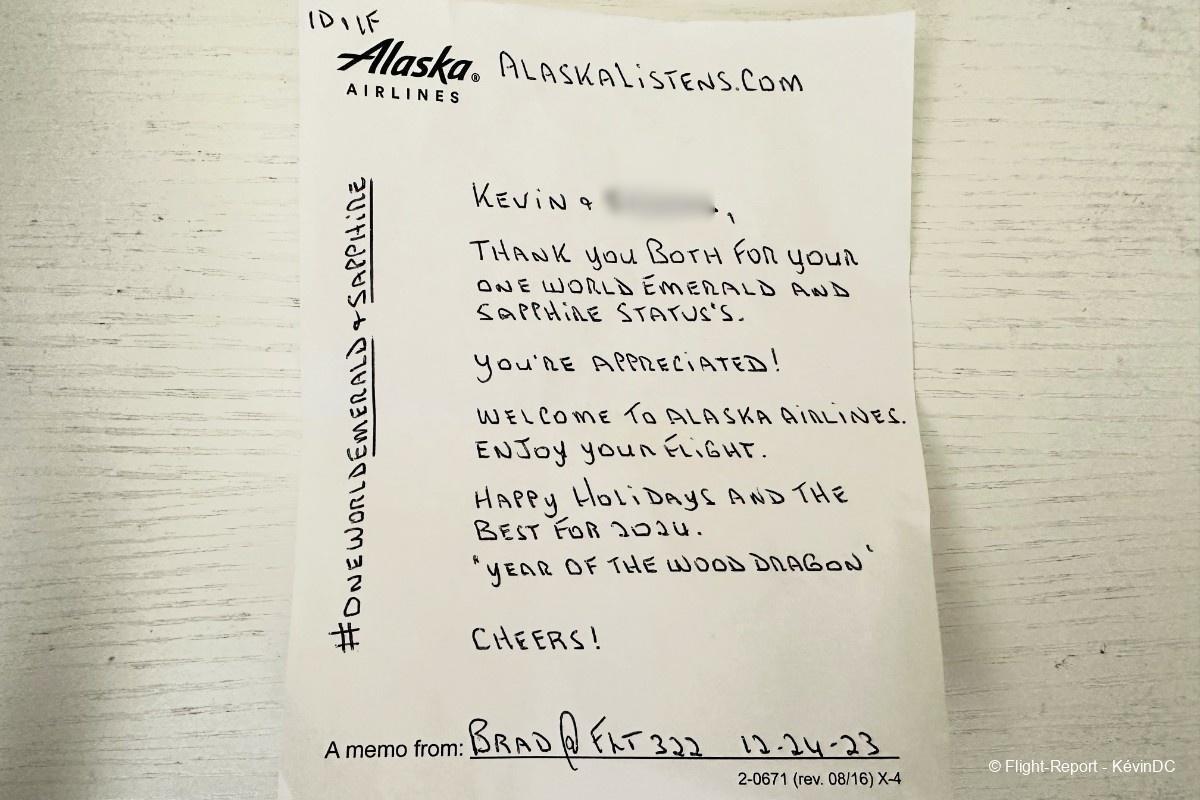 1D, 1F
Alaska® ALASKALISTENS.COM
AIRLINES
#ONEWORLDEMERALD & SAPPHIRE
KEVIN &
THANK YOU BOTH FOR YOUR
ONE WORLD EMERALD AND
SAPPHIRE STATUS'S.
YOU'RE APPRECIATED!
WELCOME TO ALASKA AIRLINES.
ENJOY YOUR FLIGHT.
HAPPY HOLIDAYS AND THE
BEST FOR 2024.
"YEAR OF THE WOOD DRAGON"
CHEERS!
A memo from: BRAD @ FLT 322 12-24-23
2-0671 (rev. 08/16) X-4
© Flight-Report - KévinDC